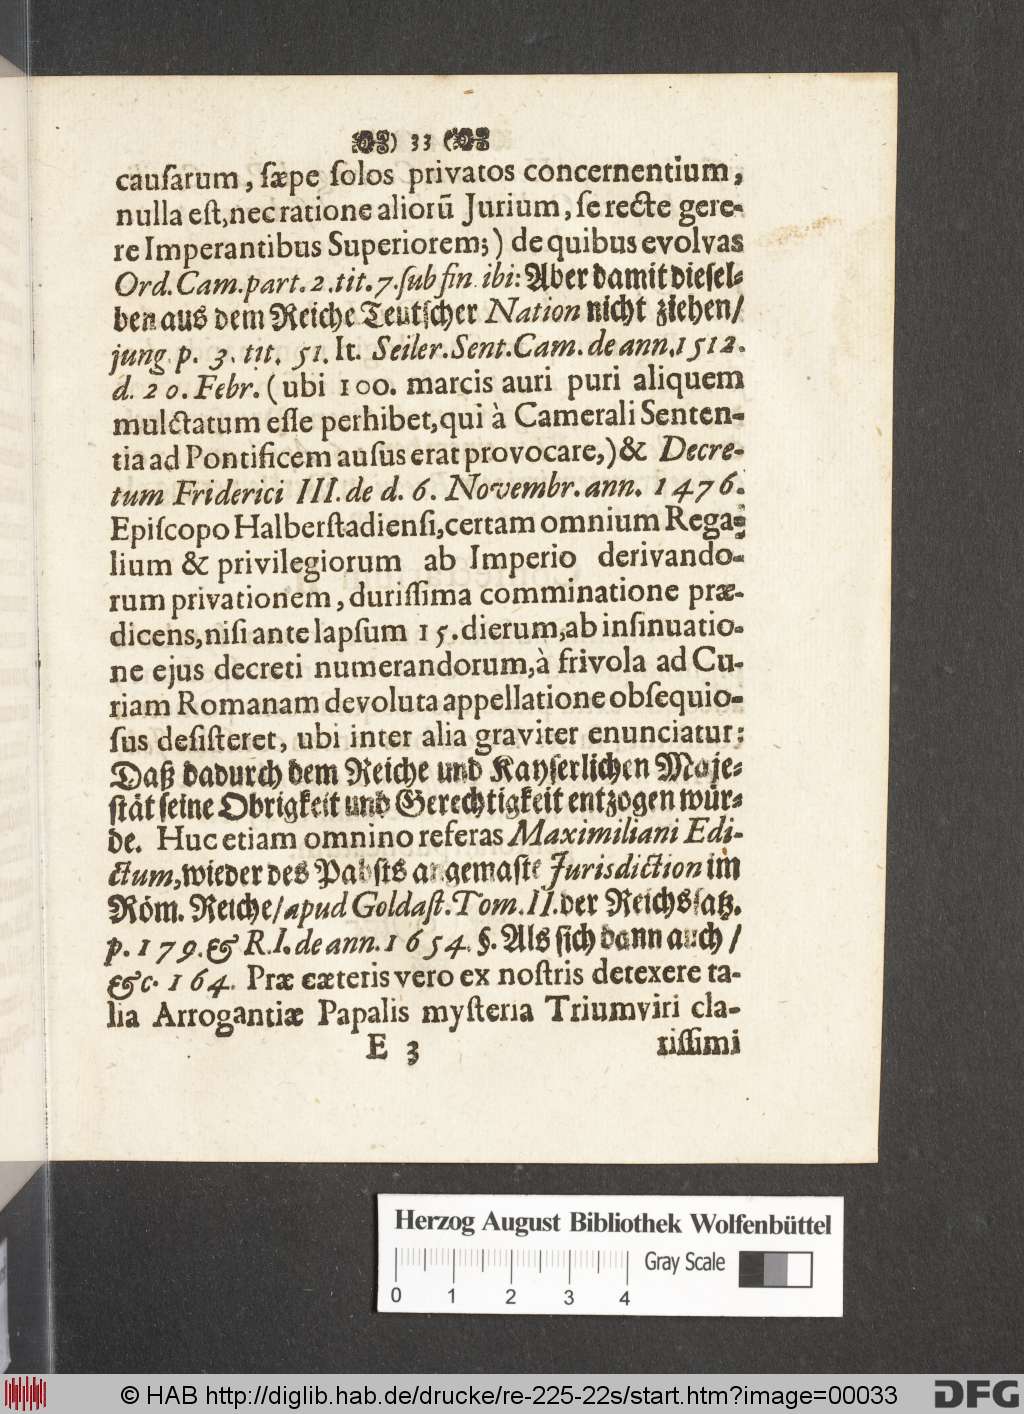 ) 33 (
causarum, sæpe solos privatos concernentium,
nulla est, nec ratione aliorũ Jurium, se recte gere-
re Imperantibus Superiorem;) de quibus evolvas
Ord. Cam. part. 2. tit. 7. sub fin. ibi: Aber damit diesel-
ben aus dem Reiche Teutscher Nation nicht ziehen/
jung. p. 3. tit. 51. It. Seiler. Sent. Cam. de ann. 1512.
d. 20. Febr. (ubi 100. marcis auri puri aliquem
mulctatum esse perhibet, qui à Camerali Senten-
tia ad Pontificem ausus erat provocare,) & Decre-
tum Friderici III. de d. 6. Novembr. ann. 1476.
Episcopo Halberstadiensi, certam omnium Rega-
lium & privilegiorum ab Imperio derivando-
rum privationem, durissima comminatione præ-
dicens, nisi ante lapsum 15. dierum, ab insinuatio-
ne ejus decreti numerandorum, à frivola ad Cu-
riam Romanam devoluta appellatione obsequio-
sus desisteret, ubi inter alia graviter enunciatur:
Daß dadurch dem Reiche und Kayserlichen Maje-
stät seine Obrigkeit und Gerechtigkeit entzogen wür-
de. Huc etiam omnino referas Maximiliani Edi-
ctum, wieder des Pabsts angemaste Jurisdiction im
Röm. Reiche/ apud Goldast. Tom. II. der Reichssatz.
p. 179. & R. I. de ann. 1654. §. Als sich dann auch /
&c. 164. Præ cæteris vero ex nostris detexere ta-
lia Arrogantiæ Papalis mysteria Triumviri cla-
E 3 rissimi
Herzog August Bibliothek Wolfenbüttel
Gray Scale
0 1 2 3 4
© HAB http://diglib.hab.de/drucke/re-225-22s/start.htm?image=00033
DFG